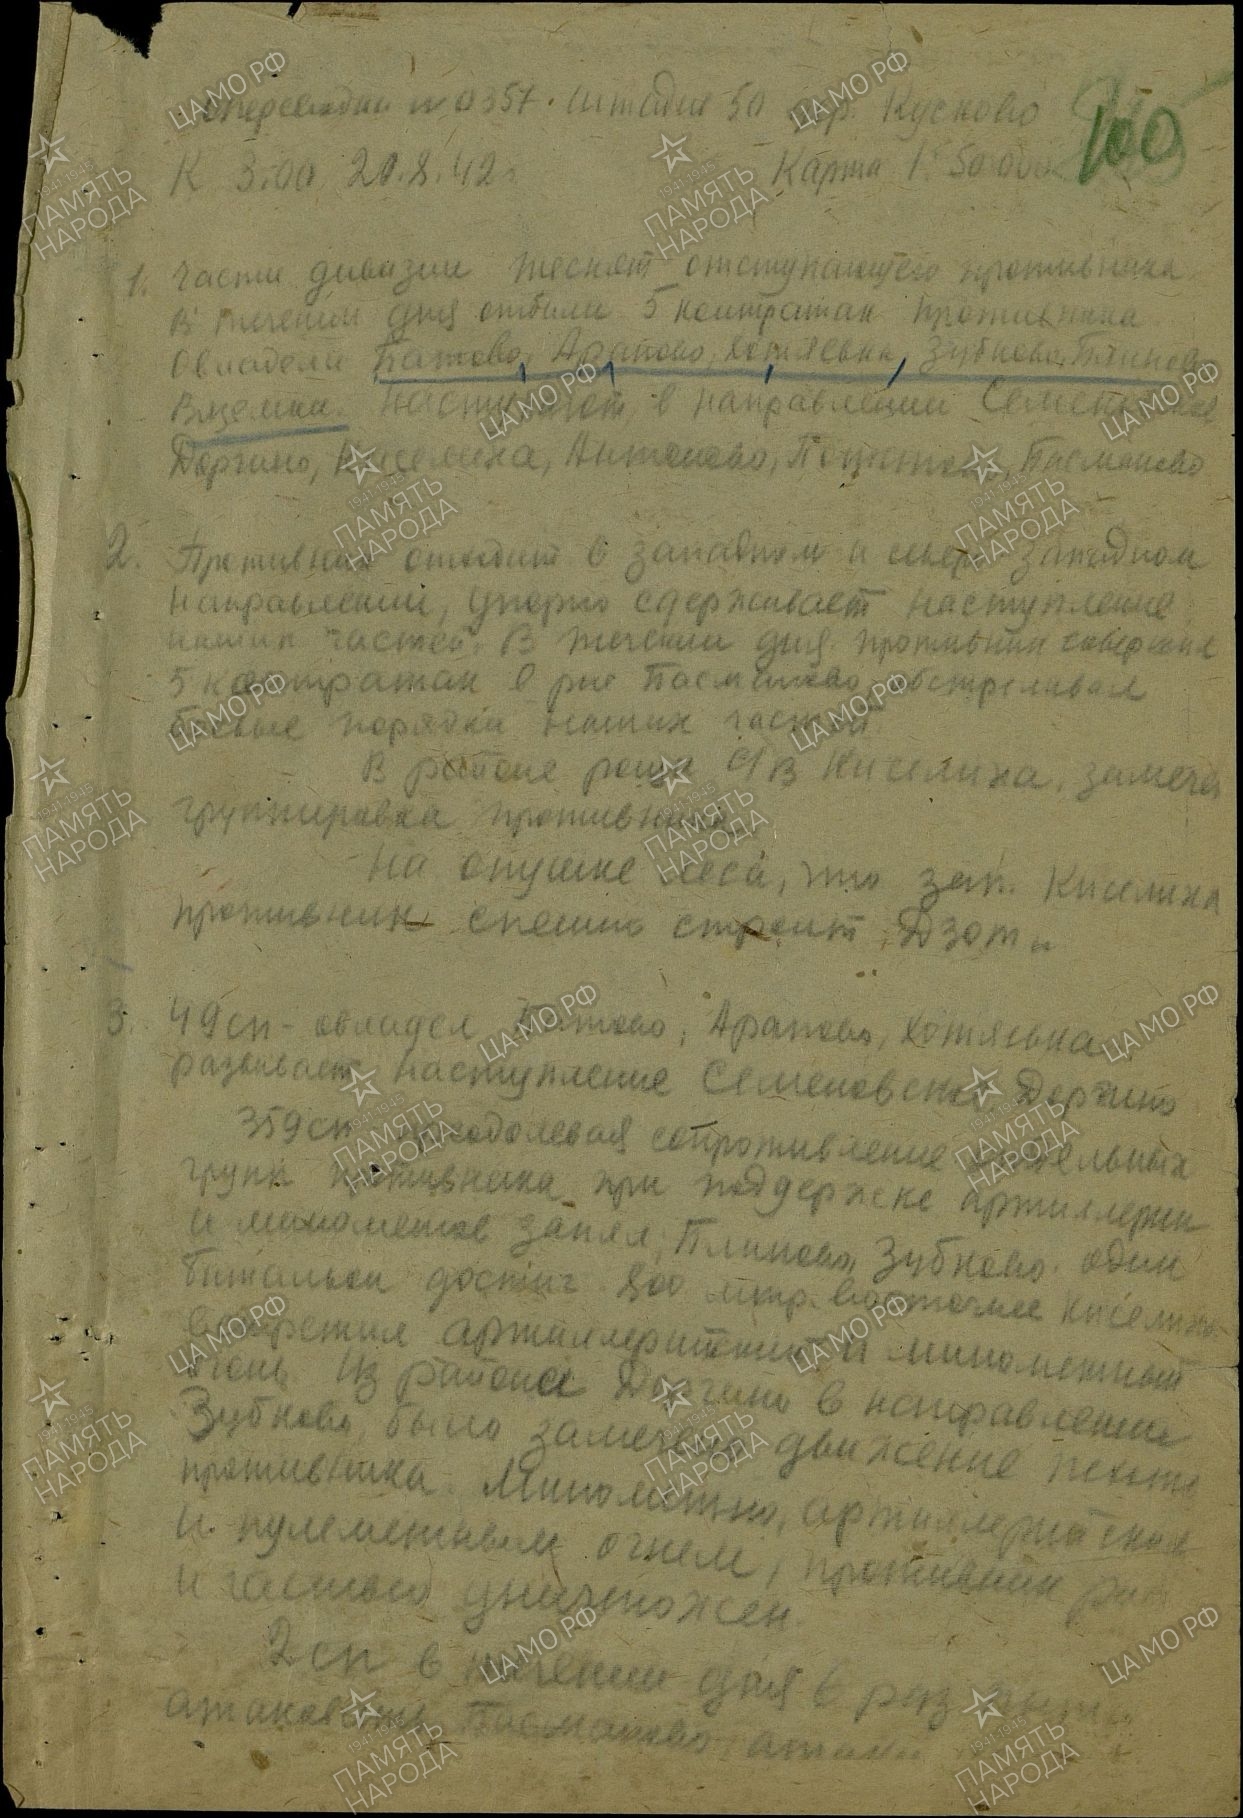 Оперсводка № 0357. Штадив 50 дер. Кусково
100
К 3.00 20.8.42 г. Карта 1:50000
1. Части дивизии теснят отступающего противника
В течении дня отбили 5 контратак противника
Овладели Батово, Арапово, Хотяевка, Зубково, Плиново
наступают в направлении
Доргино, Киселиха, Антоново,
2. Противник отходит в западном и северо западном
направлении, упорно сдерживает наступление
наших частей. В течении дня противник совершил
5 контратак в р-не обстреливал
боевые порядки наших частей.
В районе рощи Киселиха, замечен
группировка противника.
На опушке леса, что зап. Киселиха
противник спешно строит Дзоты
3. 49 сп - овладел Батово, Арапово, Хотяевка
развивает наступление Доргино
359 сп преодолевая сопротивление отдельных
групп противника при поддержке артиллерии
и минометов занял, Плиново, Зубково. один
батальон достиг 800 мтр. восточнее Киселиха
артиллерийский и минометный
огонь. Из района Доргино в направлении
Зубково, было замечено движение пехоты
противника. Минометно, артиллерийским
и пулеметным огнем, противник
и частью уничтожен.
2 сп в течении дня 6 раз